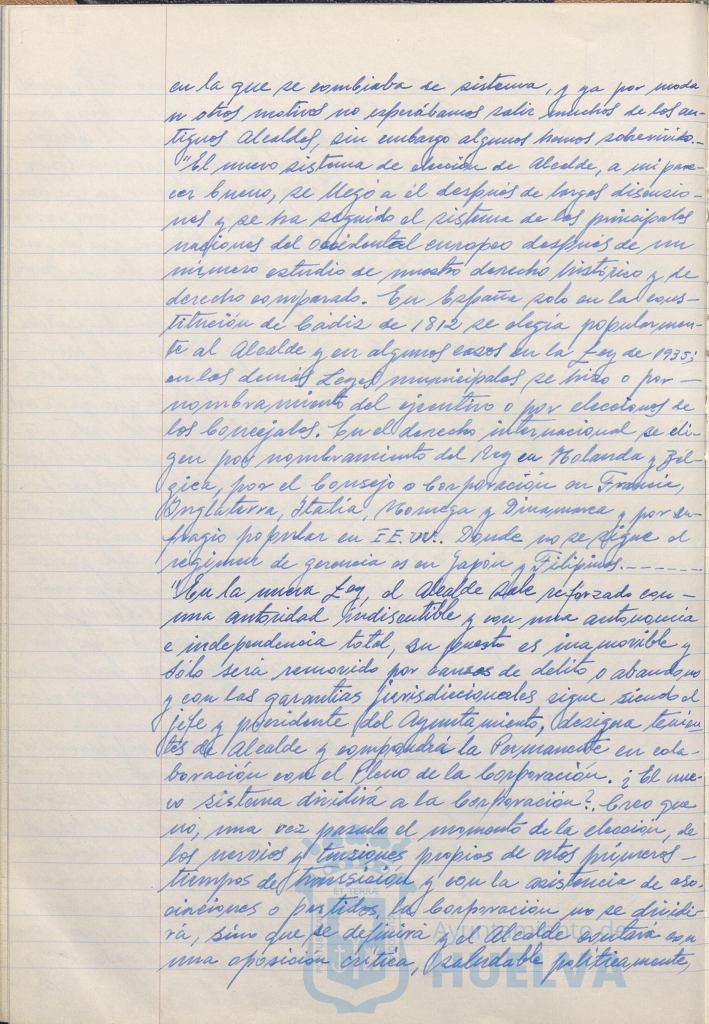 en la que se cambiaba de sistema, y ya por moda
u otros motivos no esperábamos salir muchos de los an-
tiguos Alcaldes, sin embargo algunos hemos sobrevivido.-
"El nuevo sistema de elección de Alcalde, a mi pare-
cer bueno, se llegó a él después de largas discusio-
nes y se ha seguido el sistema de las principales
naciones del occidental europeo después de un
número estudio de nuestro derecho histórico y de
derecho comparado. En España solo en la cons-
titución de Cádiz de 1812 se elegía popularmen-
te al Alcalde y en algunos casos en la Ley de 1935;
en los demás Leyes municipales se hizo o por -
nombramiento del ejecutivo o por elecciones de
los Concejales. En el derecho internacional se eli-
gen por nombramiento del Rey en Holanda y Bél-
gica, por el Consejo o Corporación en Francia,
Inglaterra, Italia, Noruega y Dinamarca y por su-
fragio popular en EE.UU. Donde no se sigue el
régimen de gerencia es en Japón y Filipinas.-------
"En la nueva Ley, el Alcalde sale reforzado con -
una autoridad indiscutible y con una autonomía
e independencia total, su puesto es inamovible y
sólo será removido por causas de delito o abandono
y con las garantías jurisdiccionales sigue siendo el
jefe y presidente del Ayuntamiento, designa tenien-
tes de Alcalde y compondrá la Permanente en cola-
boración con el Pleno de la Corporación. ¿El nue-
vo sistema dividirá a la Corporación?. Creo que
no, una vez pasado el momento de la elección, de
los nervios y tensiones propios de estos primeros -
tiempos de transición y con la asistencia de aso-
ciaciones o partidos, la Corporación no se dividi-
rá, sino que se definirá y el Alcalde contará con
una oposición crítica, saludable políticamente,
Ayuntamiento de
HUELVA